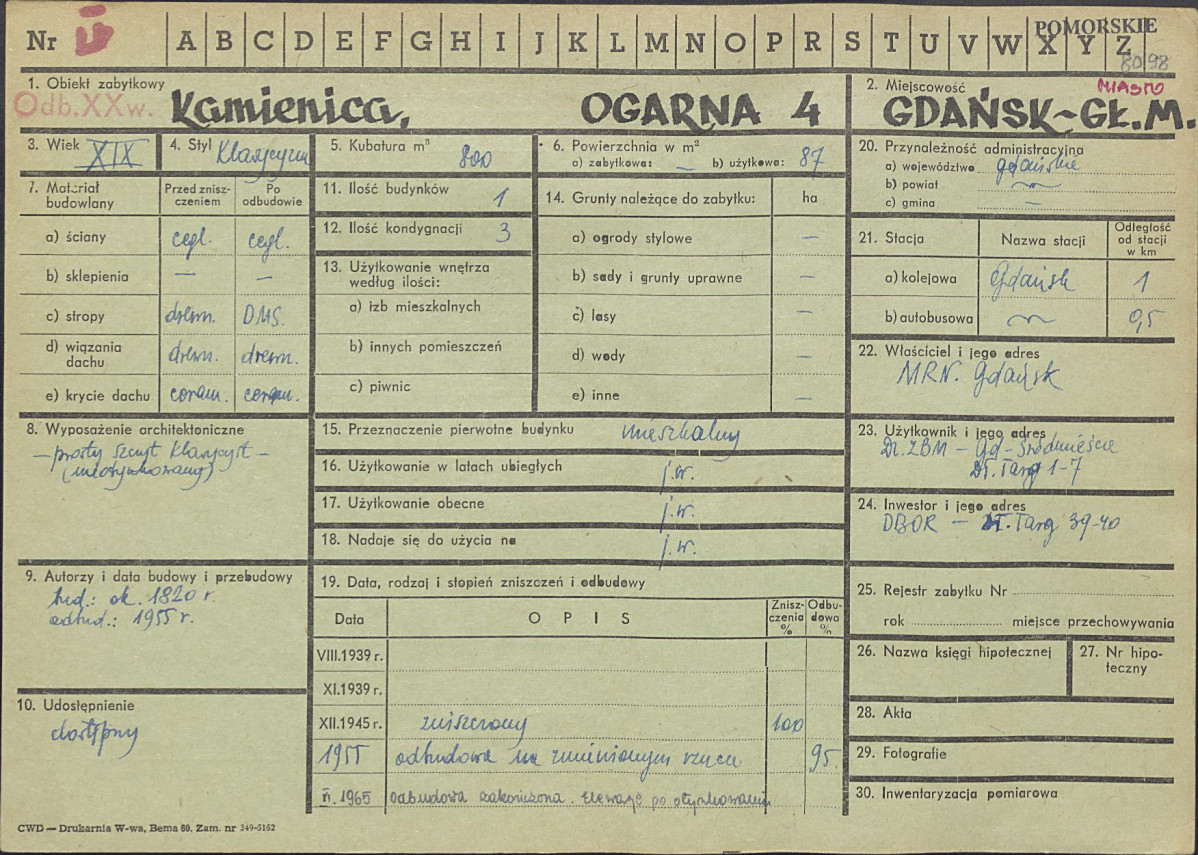 Nr IV A B C D E F G H I J K L M N O P R S T U V W X Y Z
POMORSKIE
80/98
1. Obiekt zabytkowy
Odb.XXw. Kamienica, OGARNA 4
2. Miejscowość MIASTO
GDAŃSK-GŁ.M.
3. Wiek XIX
4. Styl Klasycyzm
5. Kubatura m³ 800
6. Powierzchnia w m²
a) zabytkowa: — b) użytkowa: 87
7. Materiał budowlany
Przed zniszczeniem
Po odbudowie
a) ściany cegl. cegl.
b) sklepienia — —
c) stropy drewn. DMS.
d) wiązania dachu drewn. drewn.
e) krycie dachu ceram. ceram.
8. Wyposażenie architektoniczne
— prosty szczyt klasycyst —
(nieotynkowany)
9. Autorzy i data budowy i przebudowy
bud.: ok. 1820 r.
odbud.: 1955 r.
10. Udostępnienie
dostępny
11. Ilość budynków 1
12. Ilość kondygnacji 3
13. Użytkowanie wnętrza
według ilości:
a) izb mieszkalnych
b) innych pomieszczeń
c) piwnic
14. Grunty należące do zabytku: ha
a) ogrody stylowe —
b) sady i grunty uprawne —
c) lasy —
d) wody —
e) inne —
15. Przeznaczenie pierwotne budynku mieszkalny
16. Użytkowanie w latach ubiegłych j.w.
17. Użytkowanie obecne j.w.
18. Nadaje się do użycia na j.w.
19. Data, rodzaj i stopień zniszczeń i odbudowy
Data OPIS Zniszczenia % Odbudowa %
VIII.1939 r.
XI.1939 r.
XII.1945 r. zniszczony 100
1955 odbudowa na zmienionym rzucie 95
VI.1965 odbudowa zakończona. Elewacje po otynkowaniu
20. Przynależność administracyjna
a) województwo gdańskie
b) powiat
c) gmina —
21. Stacja Nazwa stacji Odległość od stacji w km
a) kolejowa Gdańsk 1
b) autobusowa 0,5
22. Właściciel i jego adres
MRN. Gdańsk
23. Użytkownik i jego adres
Dz.ZBM — Gd - Śródmieście
Dł. Targ 1-7
24. Inwestor i jego adres
DBOR — Dł. Targ 39-40
25. Rejestr zabytku Nr
rok miejsce przechowywania
26. Nazwa księgi hipotecznej
27. Nr hipoteczny
28. Akta
29. Fotografie
30. Inwentaryzacja pomiarowa
CWD — Drukarnia W-wa, Bema 60. Zam. nr 349-5162